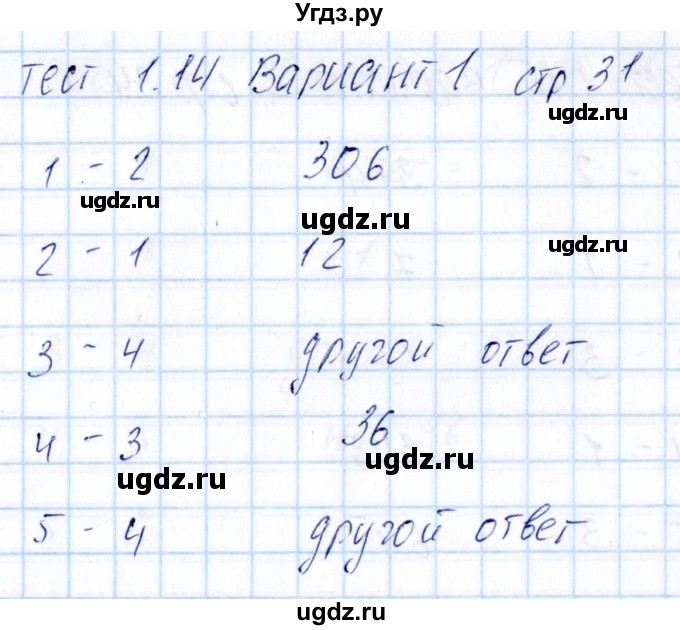 Угдз.ру
тест 1.14 Вариант 1 стр 31
ugdz.ru
1 - 2 306
ugdz.ru
ugdz.ru
2 - 1 12 ugdz.ru
3 - 4 другой ответ
4 - 3 36
ugdz.ru ugdz.ru
5 - 4 другой ответ
ugdz.ru